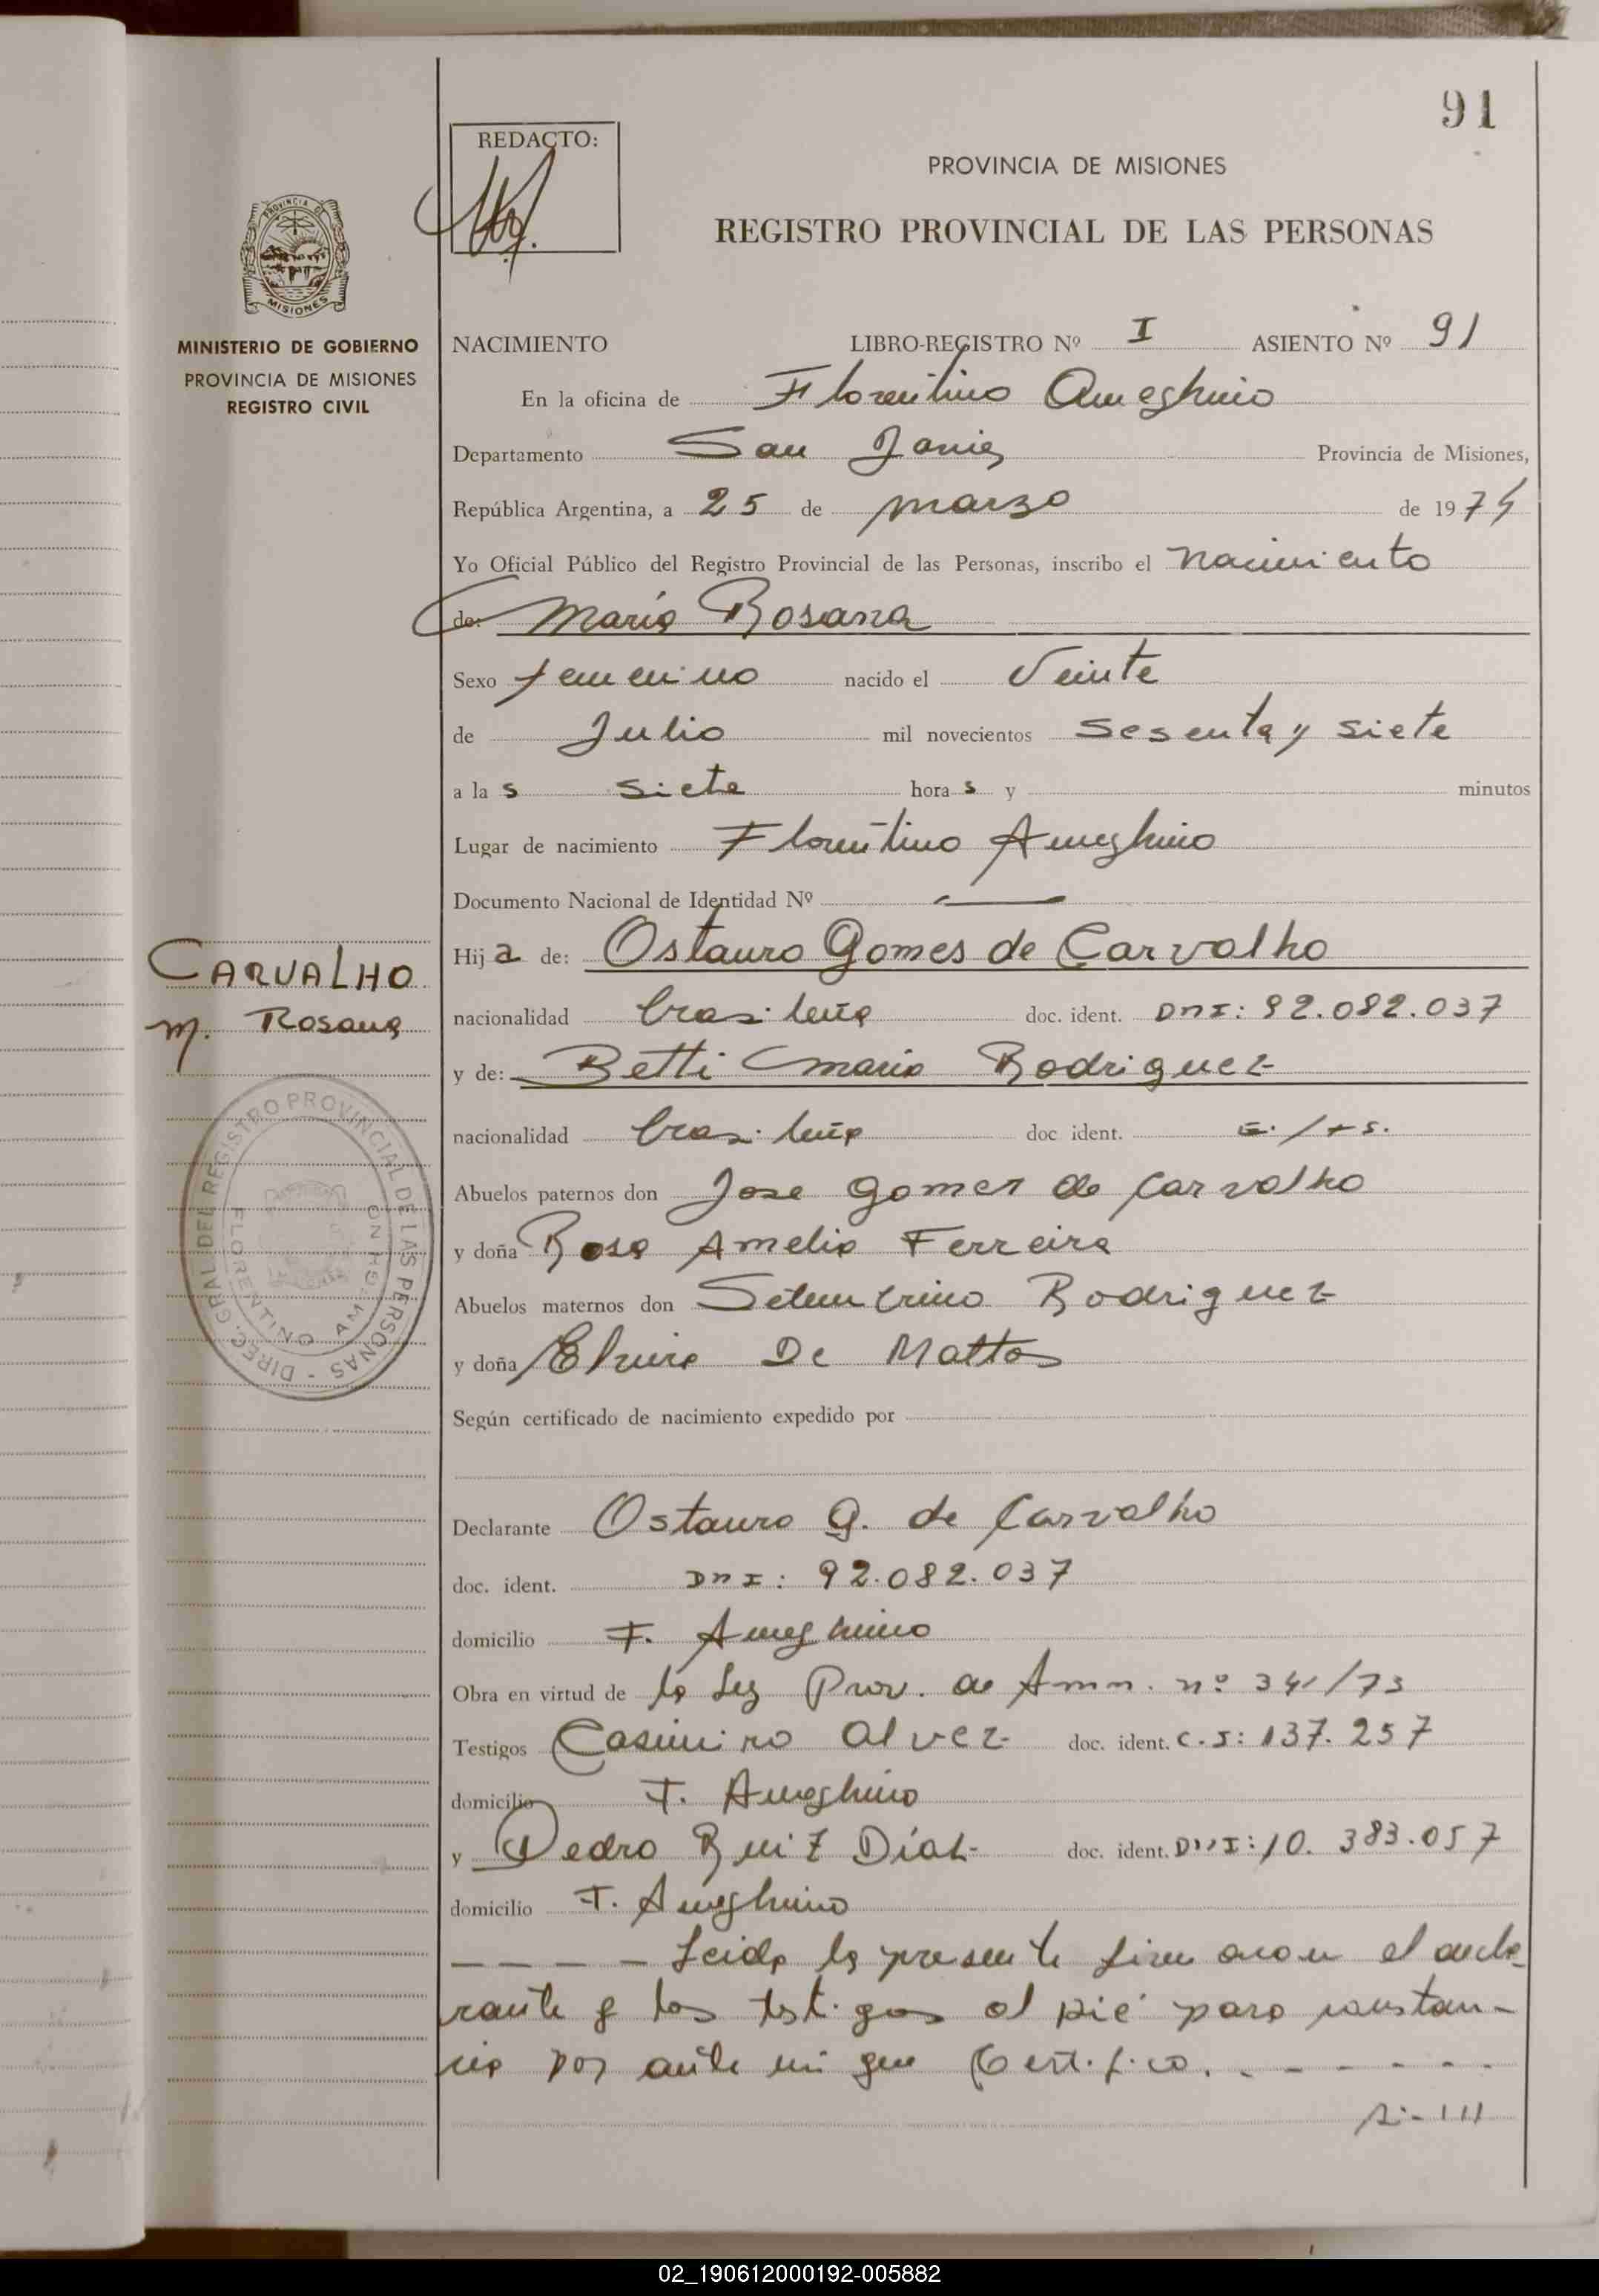 91
REDACTO:
PROVINCIA DE MISIONES
REGISTRO PROVINCIAL DE LAS PERSONAS
PROVINCIA DE
MISIONES
MINISTERIO DE GOBIERNO
PROVINCIA DE MISIONES
REGISTRO CIVIL
NACIMIENTO LIBRO-REGISTRO Nº I ASIENTO Nº 91
En la oficina de Florentino Ameghino
Departamento San Javier Provincia de Misiones,
República Argentina, a 25 de marzo de 1974
Yo Oficial Público del Registro Provincial de las Personas, inscribo el nacimiento
de: María Rosana
Sexo femenino nacido el Veinte
de Julio mil novecientos sesenta y siete
a las siete horas y minutos
Lugar de nacimiento Florentino Ameghino
Documento Nacional de Identidad Nº —
Hija de: Ostauro Gomes de Carvalho
CARVALHO
M. Rosana
nacionalidad brasileña doc. ident. DNI: 92.082.037
y de: Betti Maria Rodriguez
nacionalidad brasileña doc ident.
Abuelos paternos don Jose Gomes de Carvalho
y doña Rosa Amelia Ferreira
Abuelos maternos don Setembrino Rodriguez
y doña Elvira De Mattos
DIREC. GRAL. DEL REGISTRO PROVINCIAL DE LAS PERSONAS -
FLORENTINO AMEGHINO
Según certificado de nacimiento expedido por
Declarante Ostauro G. de Carvalho
doc. ident. DNI: 92.082.037
domicilio F. Ameghino
Obra en virtud de la Ley Prov. de Amn. nº 341/73
Testigos Casimiro Alvez doc. ident. C.I: 137.257
domicilio F. Ameghino
y Pedro Ruiz Díaz doc. ident. DNI: 10.383.057
domicilio F. Ameghino
— — — — Leida la presente firmaron el decla-
rante y los testigos al pié para constan-
cia por ante mi que Certifico. - - - - - -
02_190612000192-005882